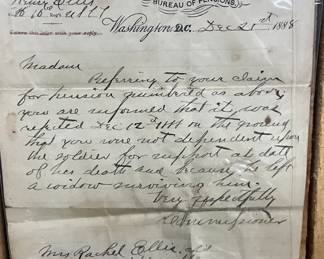 BUREAU OF PENSIONS,
Return this letter with your reply.
Washington, D.C. Dec 21st 1888
Madam
Referring to your claim
for pension numbered as above
you are informed that it was
rejected Dec 12th 1888 on the ground
that you were not dependent upon
the soldier for support at date
of his death and because he left
a widow surviving him.
Very respectfully
Commissioner
Mrs Rachel Ellis